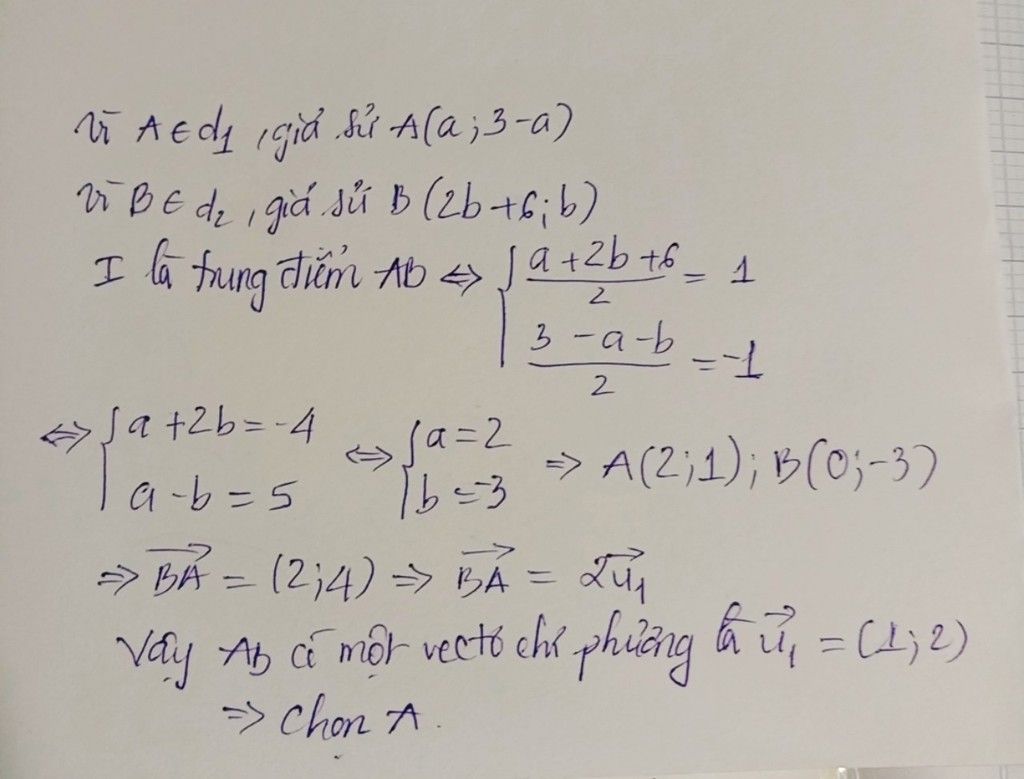 Vì A ∈ d₁, giả sử A(a; 3-a)
Vì B ∈ d₂, giả sử B(2b+6; b)
I là trung điểm AB ⇔ { (a+2b+6)/2 = 1
(3-a-b)/2 = -1
⇔ { a+2b=-4 ⇔ { a=2 ⇒ A(2;1); B(0;-3)
a-b=5 b=-3
⇒ \overrightarrow{BA} = (2;4) ⇒ \overrightarrow{BA} = 2\overrightarrow{u}₁
Vậy AB có một vectơ chỉ phương là \overrightarrow{u}₁ = (1;2)
⇒ Chọn A.